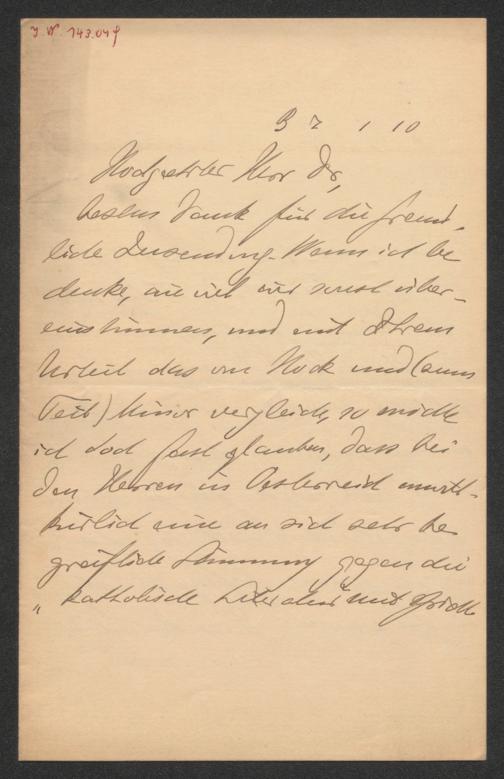 J. N. 143.049
B 7 1 10
Hochgeehrter Herr Dr,
besten Dank für die freund-
liche Zusendung. Wenn ich be
denke, wie viel wir sonst über-
einstimmen, und mit Ihrem
Urteil das von Hock und (zum
Teil) Minor vergleiche, so möchte
ich doch fast glauben, dass bei
den Herren in Oesterreich unwill-
kürlich eine an sich sehr be
greifliche Stimmung gegen die
„katholische Literatur" mit